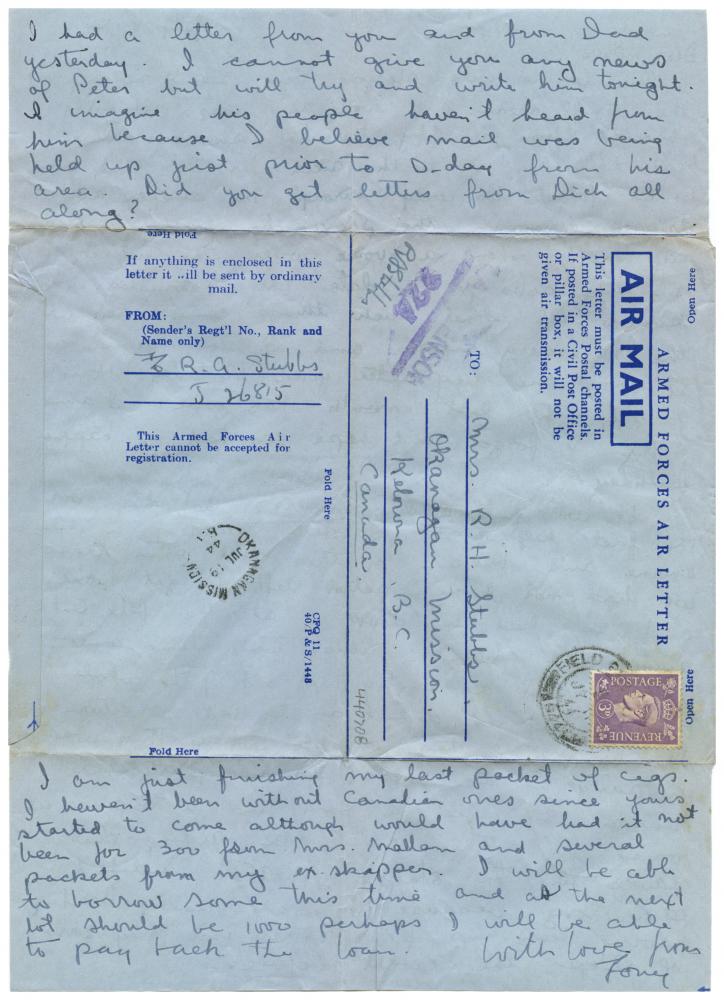 I had a letter from you and from Dad
yesterday. I cannot give you any news
of Peter but will try and write him tonight.
I imagine his people haven't heard from
him because I believe mail was being
held up just prior to D-day from his
area. Did you get letters from Dick all
along?
Fold Here
If anything is enclosed in this
letter it ..ill be sent by ordinary
mail.
FROM:
(Sender's Regt'l No., Rank and
Name only)
R. A. Stubbs
J 26815
This Armed Forces Air
Letter cannot be accepted for
registration.
Fold Here
OKANAGAN MISSION
JUL 19
44
CFQ 11
40/P & S/1448
Fold Here
Open Here
ARMED FORCES AIR LETTER
Open Here
AIR MAIL
This letter must be posted in
Armed Forces Postal channels.
If posted in a Civil Post Office
or pillar box, it will not be
given air transmission.
RAStubbs
TO:
Mrs. R. H. Stubbs,
Okanagan Mission,
Kelowna, B.C.
Canada.
440708
FIELD
POSTAGE
3D
REVENUE
I am just finishing my last packet of cigs.
I haven't been without Canadian ones since yours
started to come although would have had it not
been for 300 from Mrs. Mallam and several
packets from my ex-skipper. I will be able
to borrow some this time and as the next
lot should be 1000 perhaps I will be able
to pay back the loan. With love from
Tony